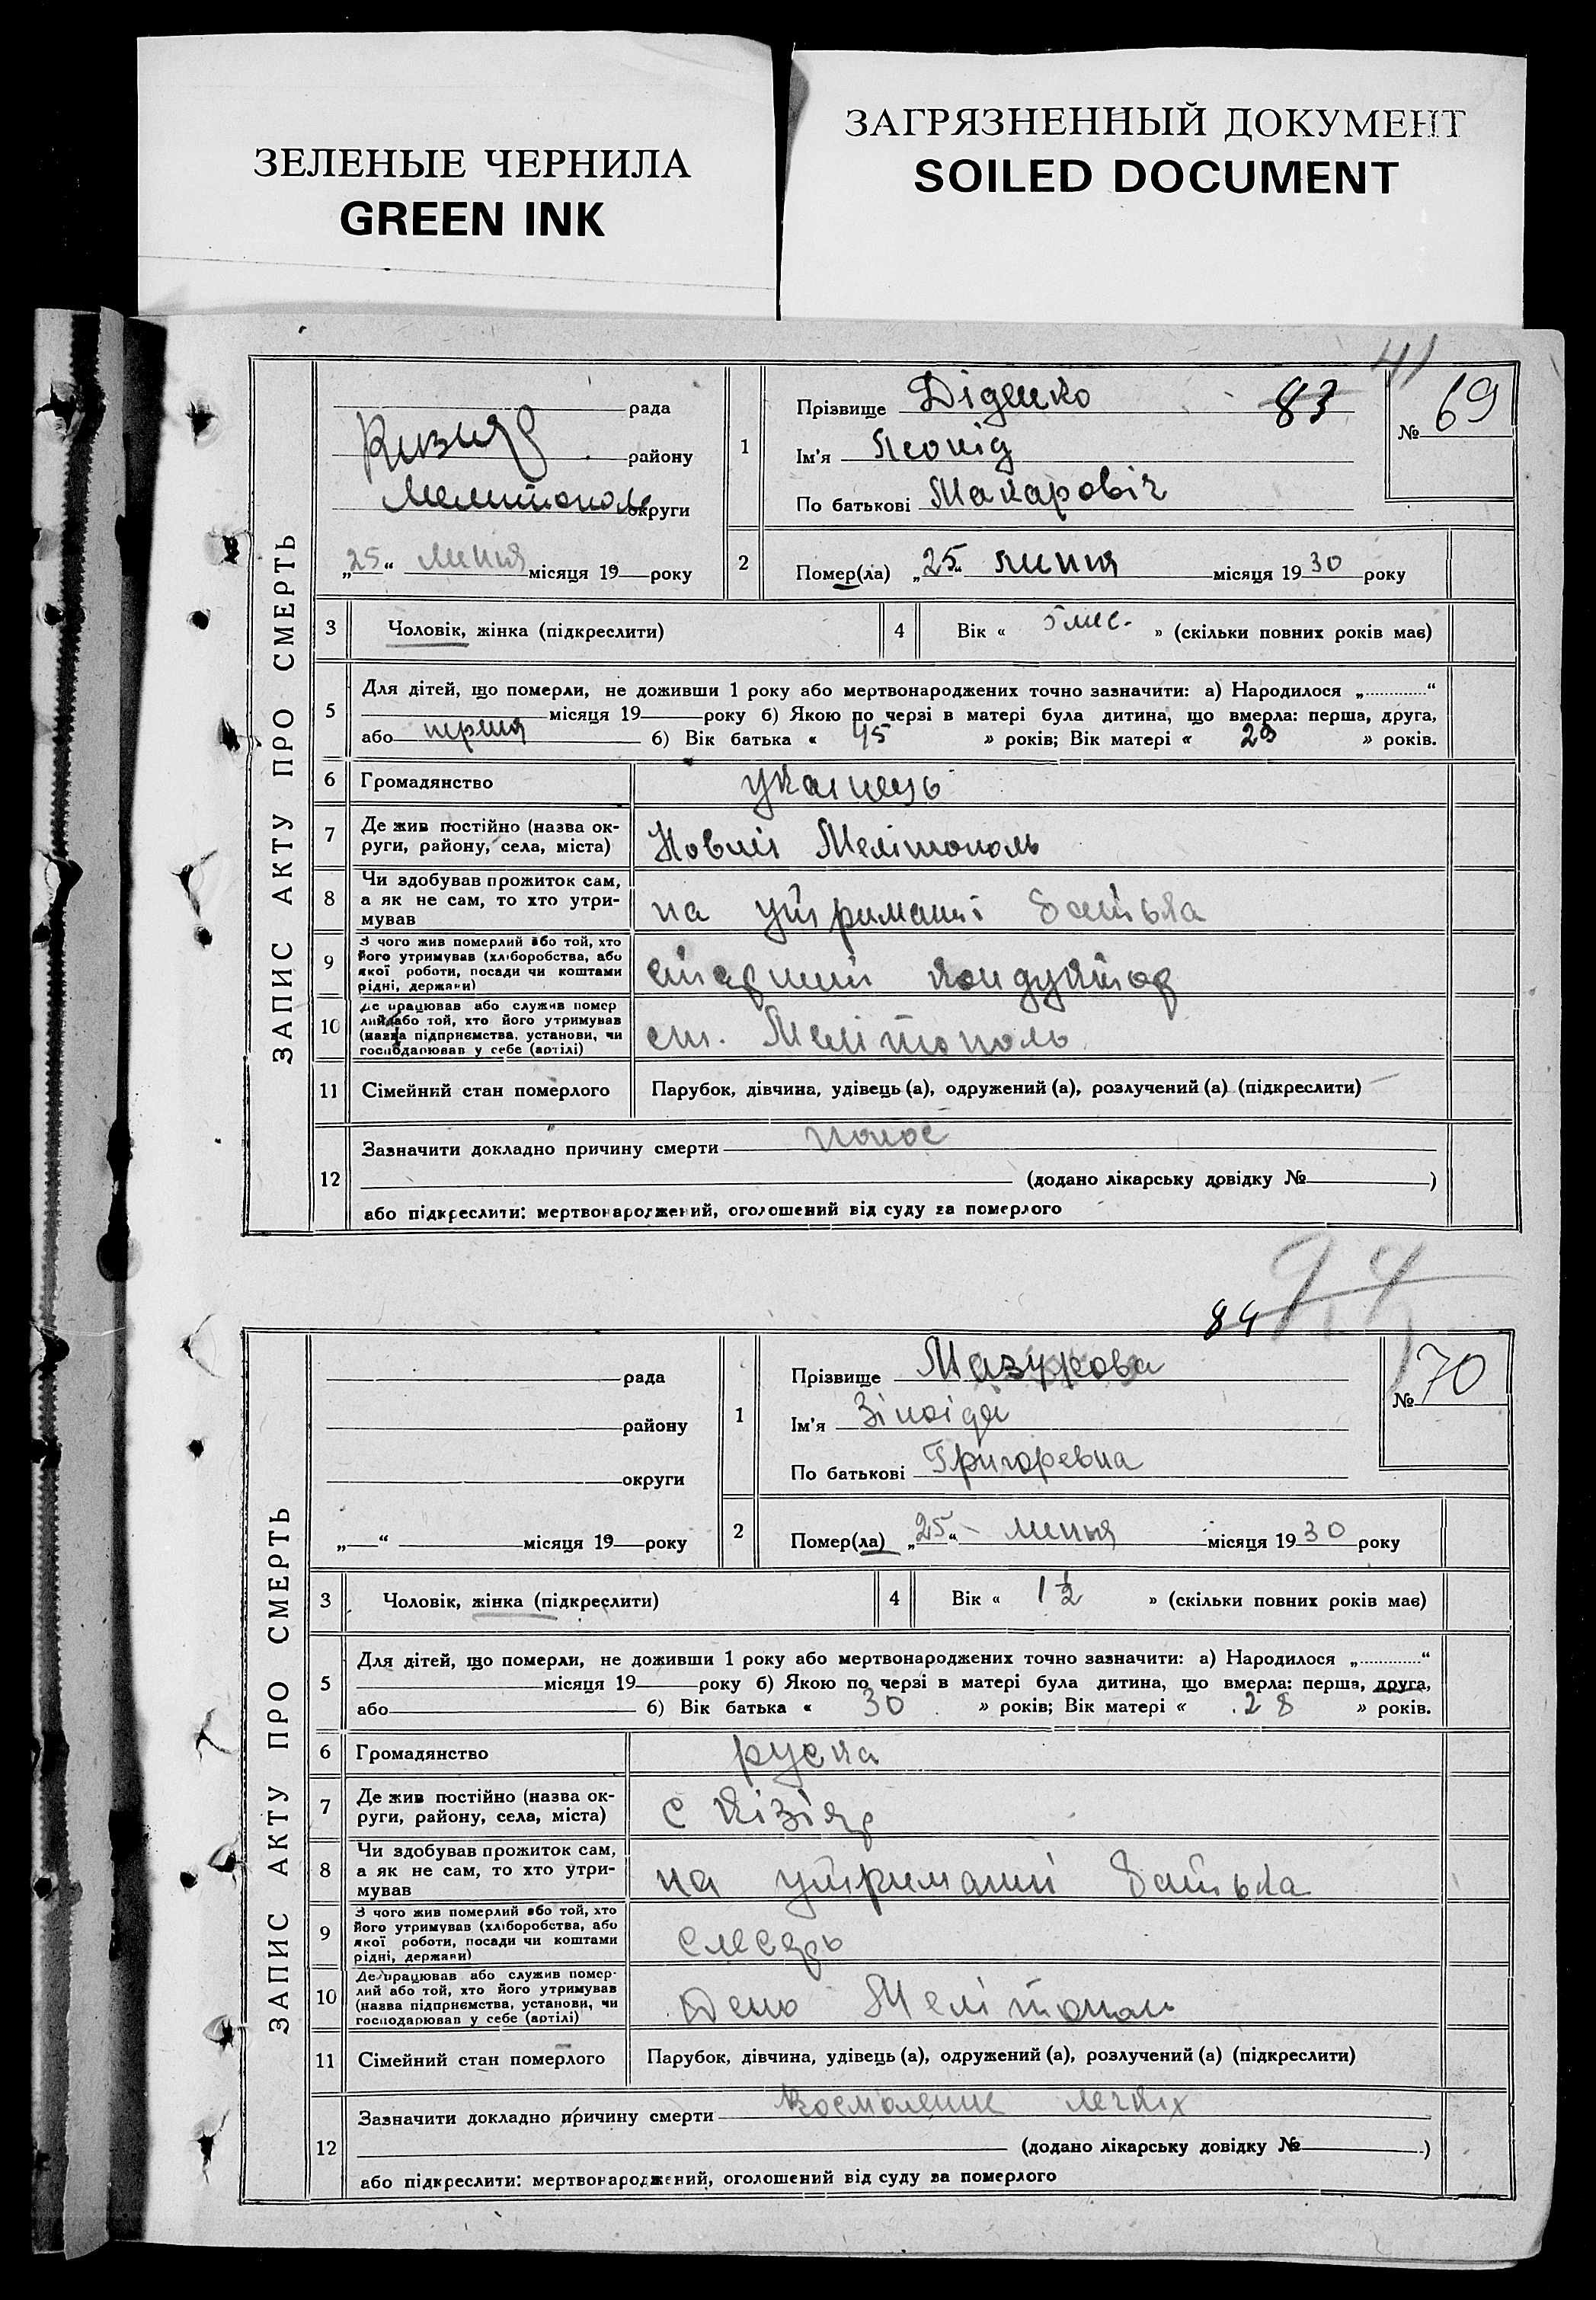 ЗЕЛЕНЫЕ ЧЕРНИЛА
GREEN INK
ЗАГРЯЗНЕННЫЙ ДОКУМЕНТ
SOILED DOCUMENT
41
ЗАПИС АКТУ ПРО СМЕРТЬ
рада
Кизияр району
Мелитополь округи
„25“ липня місяця 19 року
1
Прізвище Діденко
83
№ 69
Ім'я Леонід
По батькові Макаровіч
2
Помер(ла) „25“ липня місяця 1930 року
3
Чоловік, жінка (підкреслити)
4
Вік « 5 мес. » (скільки повних років має)
5
Для дітей, що померли, не доживши 1 року або мертвонароджених точно зазначити: а) Народилося „ “
місяця 19 року б) Якою по черзі в матері була дитина, що вмерла: перша, друга,
або 6) Вік батька « 45 » років; Вік матері « 29 » років.
6
Громадянство
7
Де жив постійно (назва ок-
руги, району, села, міста)
Новий Мелітополь
8
Чи здобував прожиток сам,
а як не сам, то хто утри-
мував
на утриманні батька
9
З чого жив померлий або той, хто
його утримував (хліборобства, або
якої роботи, посади чи коштами
рідні, держави)
старший кондуктор
10
Де працював або служив помер
лий або той, хто його утримував
(назва підприємства, установи, чи
господарював у себе (артілі)
ст. Мелітополь
11
Сімейний стан померлого
Парубок, дівчина, удівець (а), одружений (а), розлучений (а) (підкреслити)
12
Зазначити докладно причину смерти понос
(додано лікарську довідку № )
або підкреслити: мертвонароджений, оголошений від суду за померлого
84
ЗАПИС АКТУ ПРО СМЕРТЬ
рада
району
округи
„ “ місяця 19 року
1
Прізвище Мазурова
№ 70
Ім'я Зіноіда
По батькові Григоревна
2
Помер(ла) „25“ липня місяця 1930 року
3
Чоловік, жінка (підкреслити)
4
Вік « 1 1/2 » (скільки повних років має)
5
Для дітей, що померли, не доживши 1 року або мертвонароджених точно зазначити: а) Народилося „ “
місяця 19 року б) Якою по черзі в матері була дитина, що вмерла: перша, друга,
або 6) Вік батька « 30 » років; Вік матері « 28 » років.
6
Громадянство
руска
7
Де жив постійно (назва ок-
руги, району, села, міста)
с Кізіяр
8
Чи здобував прожиток сам,
а як не сам, то хто утри-
мував
на утриманні батька
9
З чого жив померлий або той, хто
його утримував (хліборобства, або
якої роботи, посади чи коштами
рідні, держави)
слесарь
10
Де працював або служив помер-
лий або той, хто його утримував
(назва підприємства, установи, чи
господарював у себе (артілі)
Депо Мелітополь
11
Сімейний стан померлого
Парубок, дівчина, удівець (а), одружений (а), розлучений (а) (підкреслити)
12
Зазначити докладно причину смерти восполение легких
(додано лікарську довідку № )
або підкреслити: мертвонароджений, оголошений від суду за померлого